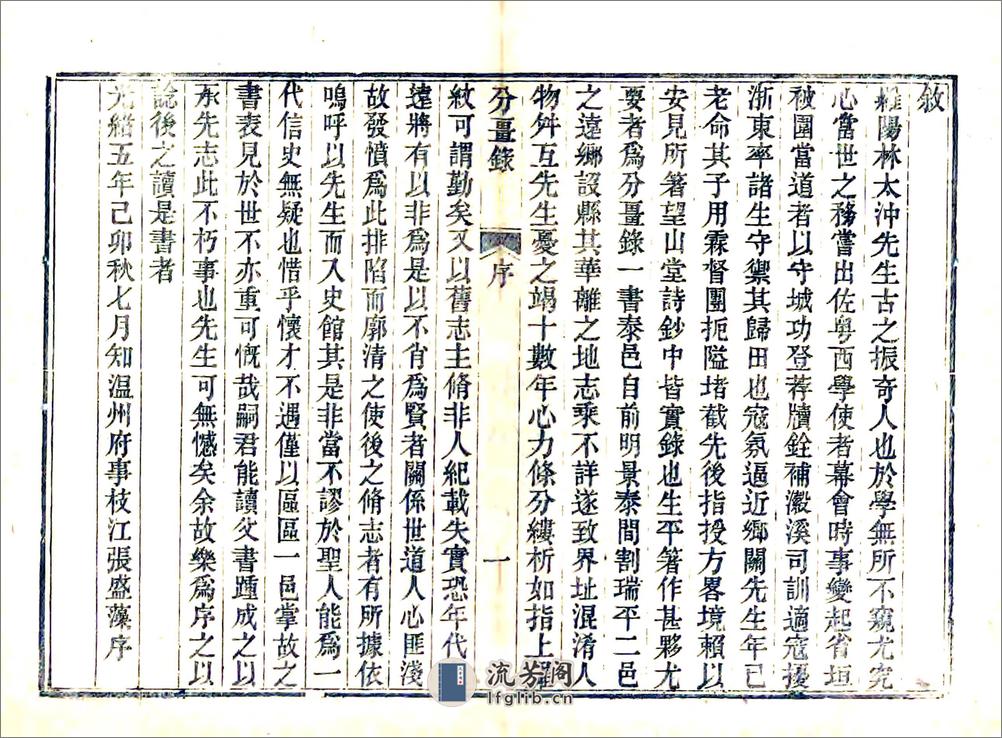 敘
羅陽林太沖先生古之振奇人也於學無所不窺尤究
心當世之務嘗出佐粵西學使者幕會時事變起省垣
被圍當道者以守城功登荐牘銓補瀫溪司訓適寇擾
浙東率諸生守禦其歸田也寇氛逼近鄉關先生年已
老命其子用霖督團扼隘堵截先後指授方畧境賴以
安見所箸望山堂詩鈔中皆實錄也生平箸作甚夥尤
要者爲分畺錄一書泰邑自前明景泰間割瑞平二邑
之遠鄉設縣其華離之地志乘不詳遂致界址混淆人
物舛互先生憂之竭十數年心力條分縷析如指上羅
紋可謂勤矣又以舊志主脩非人紀載失實恐年代一
遠將有以非爲是以不肖爲賢者關係世道人心匪淺
故發憤爲此排陷而廓清之使後之脩志者有所據依
嗚呼以先生而入史館其是非當不謬於聖人能爲一
代信史無疑也惜乎懷才不遇僅以區區一邑掌故之
書表見於世不亦重可慨哉嗣君能讀父書踵成之以
承先志此不朽事也先生可無憾矣余故樂爲序之以
諗後之讀是書者
光緒五年己卯秋七月知温州府事枝江張盛藻序
分畺錄
序
一
流芳阁
lfglib.cn